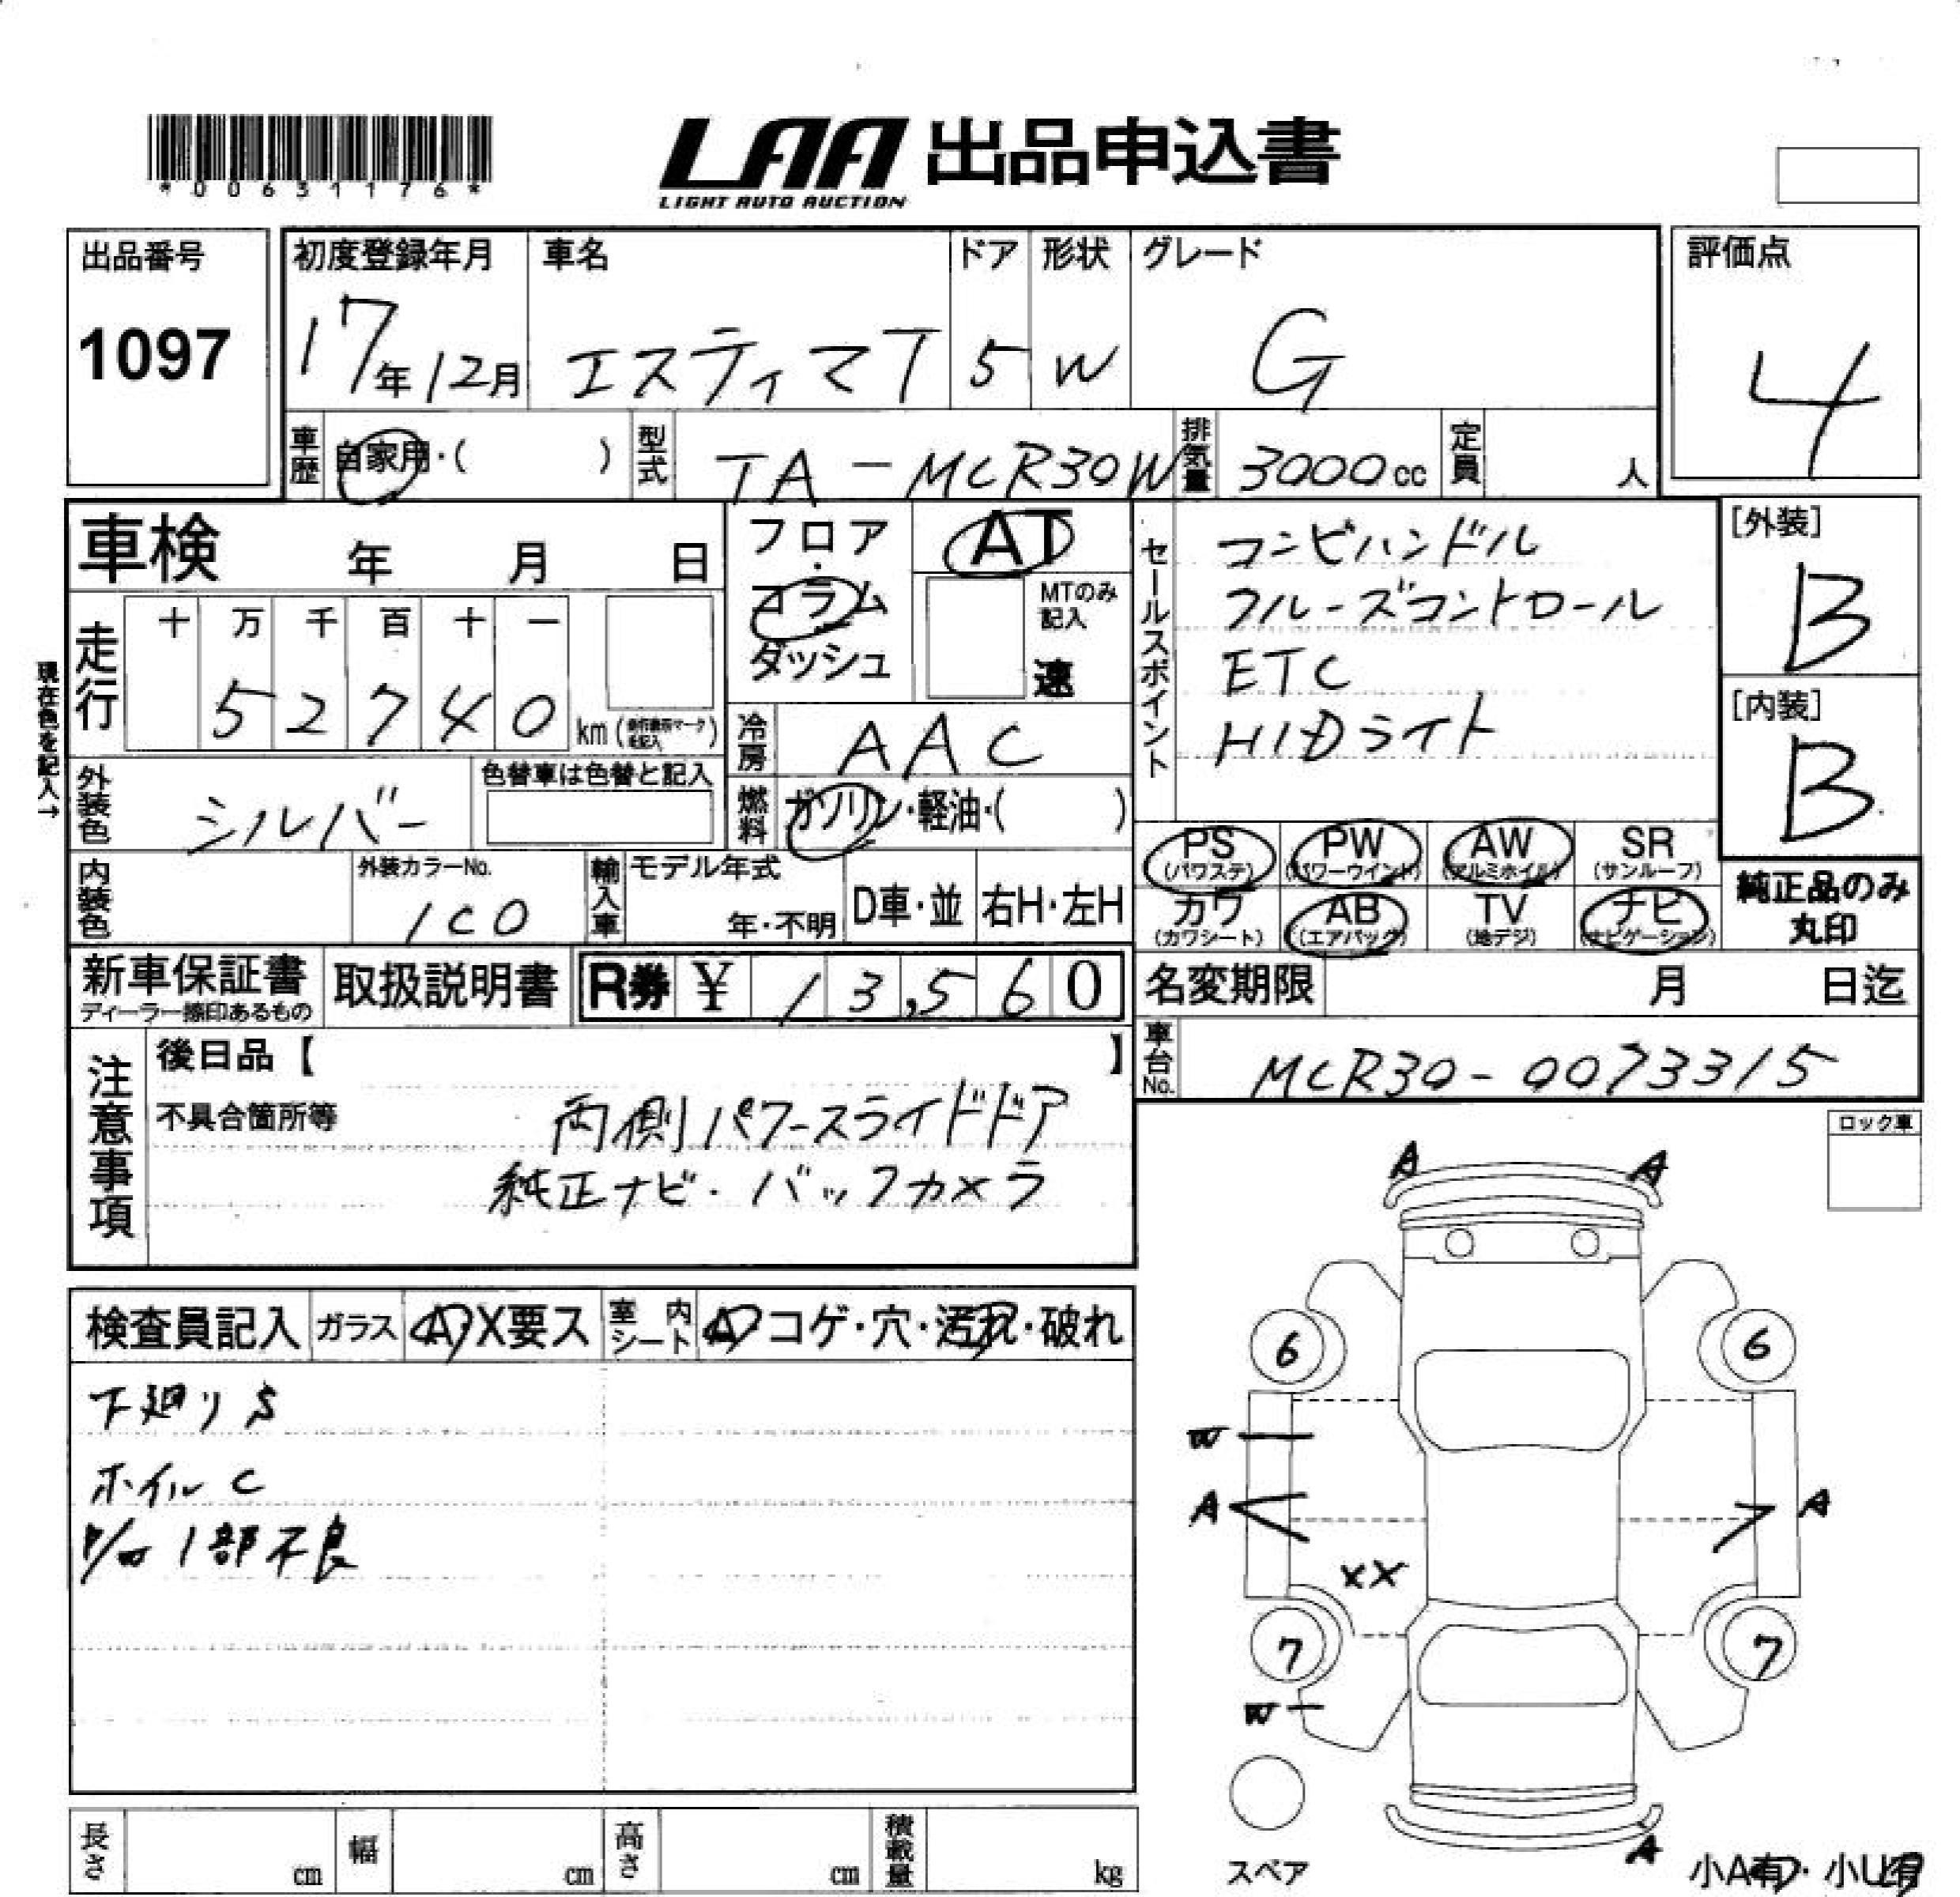 *00631176*
LAA 出品申込書
LIGHT AUTO AUCTION
出品番号
1097
初度登録年月
17年12月
車名
エスティマT
ドア
5
形状
W
グレード
G
評価点
4
車歴
自家用・( )
型式
TA-MCR30W
排気量
3000cc
定員
人
車検 年 月 日
走行
十 万 千 百 十 一
5 2 7 4 0 km
現在色を記入→
外装色
シルバー
色替車は色替と記入
内装色
外装カラーNo.
1C0
輸入車
モデル年式
年・不明
D車・並
右H・左H
フロア
・
コラム
ダッシュ
AT
MTのみ
記入
速
冷房
AAC
燃料
ガソリン・軽油・( )
セールスポイント
コンビハンドル
クルーズコントロール
ETC
HIDライト
[外装]
B
[内装]
B
PS
(パワステ)
PW
(パワーウインド)
AW
(アルミホイル)
SR
(サンルーフ)
カワ
(カワシート)
AB
(エアバッグ)
TV
(地デジ)
ナビ
(ナビゲーション)
純正品のみ
丸印
新車保証書
取扱説明書
R券 ¥ 13,560
名変期限 月 日迄
車台No.
MCR30-0073315
注意事項
後日品【 】
不具合箇所等
両側パワースライドドア
純正ナビ・バックカメラ
ロック車
検査員記入
ガラス
A・X要ス
室内
シート
A・コゲ・穴・汚れ・破れ
下廻りS
ホイルC
1部不良
A A
6 6
W
A A
XX
7 7
W
A
スペア
小A有・小U有
長さ cm
幅 cm
高さ cm
積載量 kg